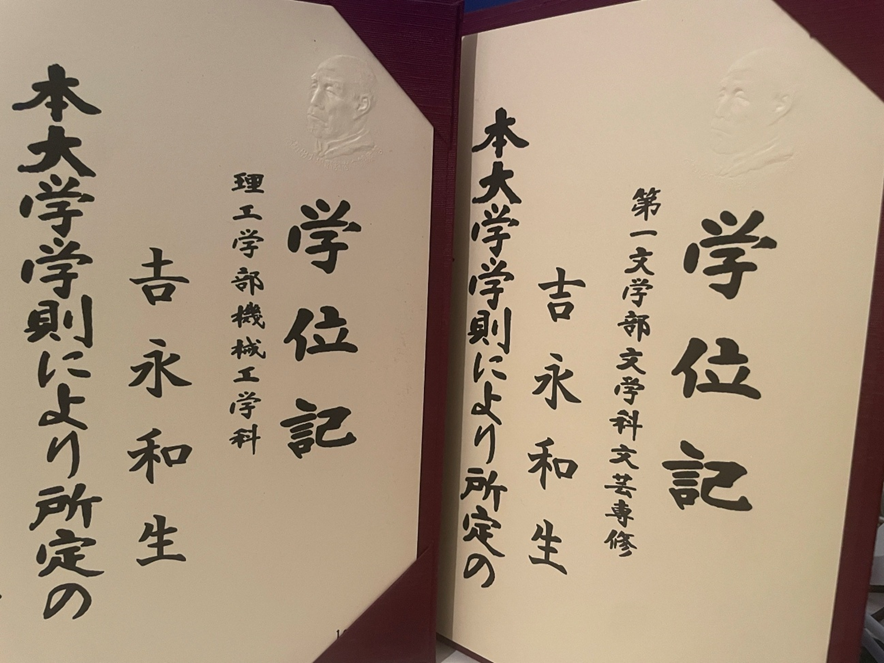 学位記
理工学部機械工学科
𠮷永和生
本大学学則により所定の
学位記
第一文学部文学科文芸専修
吉永和生
本大学学則により所定の